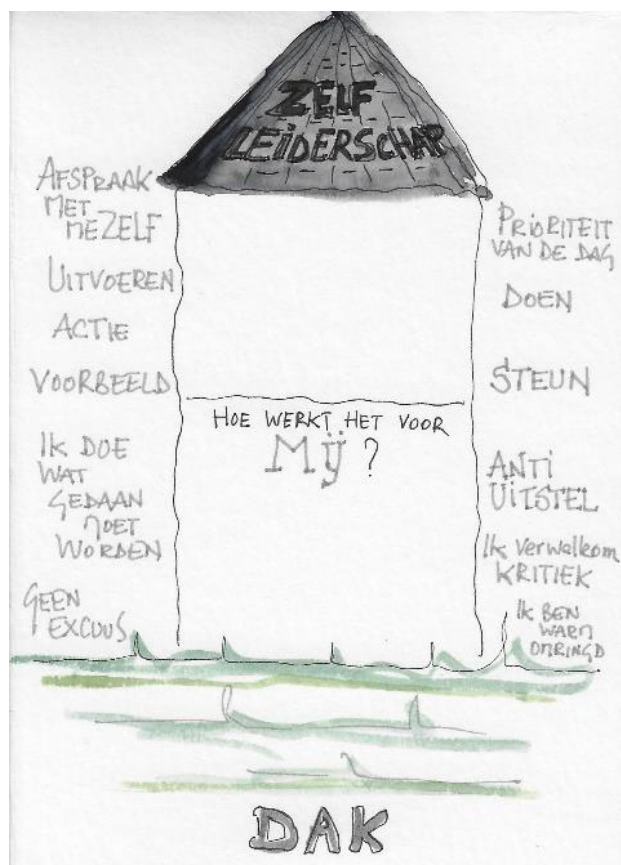 ZELF
LEIDERSCHAP
AFSPRAAK
MET
MEZELF
UITVOEREN
ACTIE
VOORBEELD
IK DOE
WAT
GEDAAN
MOET
WORDEN
GEEN
EXCUUS
HOE WERKT HET VOOR
MIJ ?
PRIORITEIT
VAN DE DAG
DOEN
STEUN
ANTI
UITSTEL
Ik verwelkom
KRITIEK
IK BEN
WARM
OMRINGD
DAK